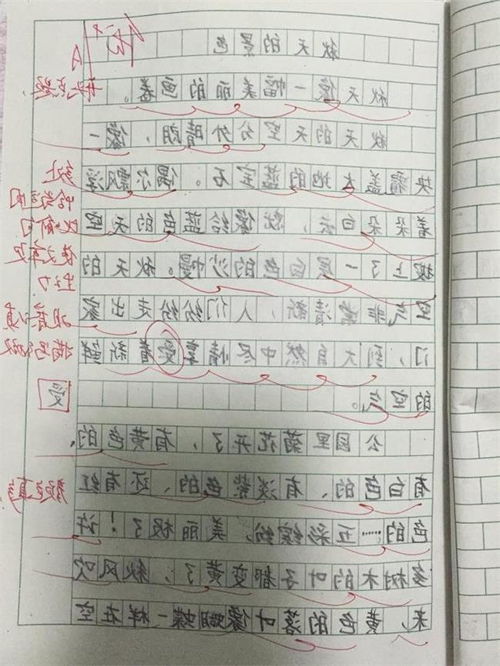 秋天的景色
秋天像一幅美丽的画卷。
秋天的天空分外晴朗,像一
块覆盖大地的蓝宝石。偶尔飘浮
着朵朵白云,就像给蓝色的天空
披上了一层白色的沙幔。秋天的
空气非常清新,人们纷纷走出家
门,到大自然中尽情享受着新鲜
的空气。
公园里菊花开了,有黄色的,
有白色的、有淡紫色的、还有红
色的……五彩缤纷,美丽极了!许
多树木的叶子都变黄了;秋风吹
来,黄色的落叶像蝴蝶一样在空